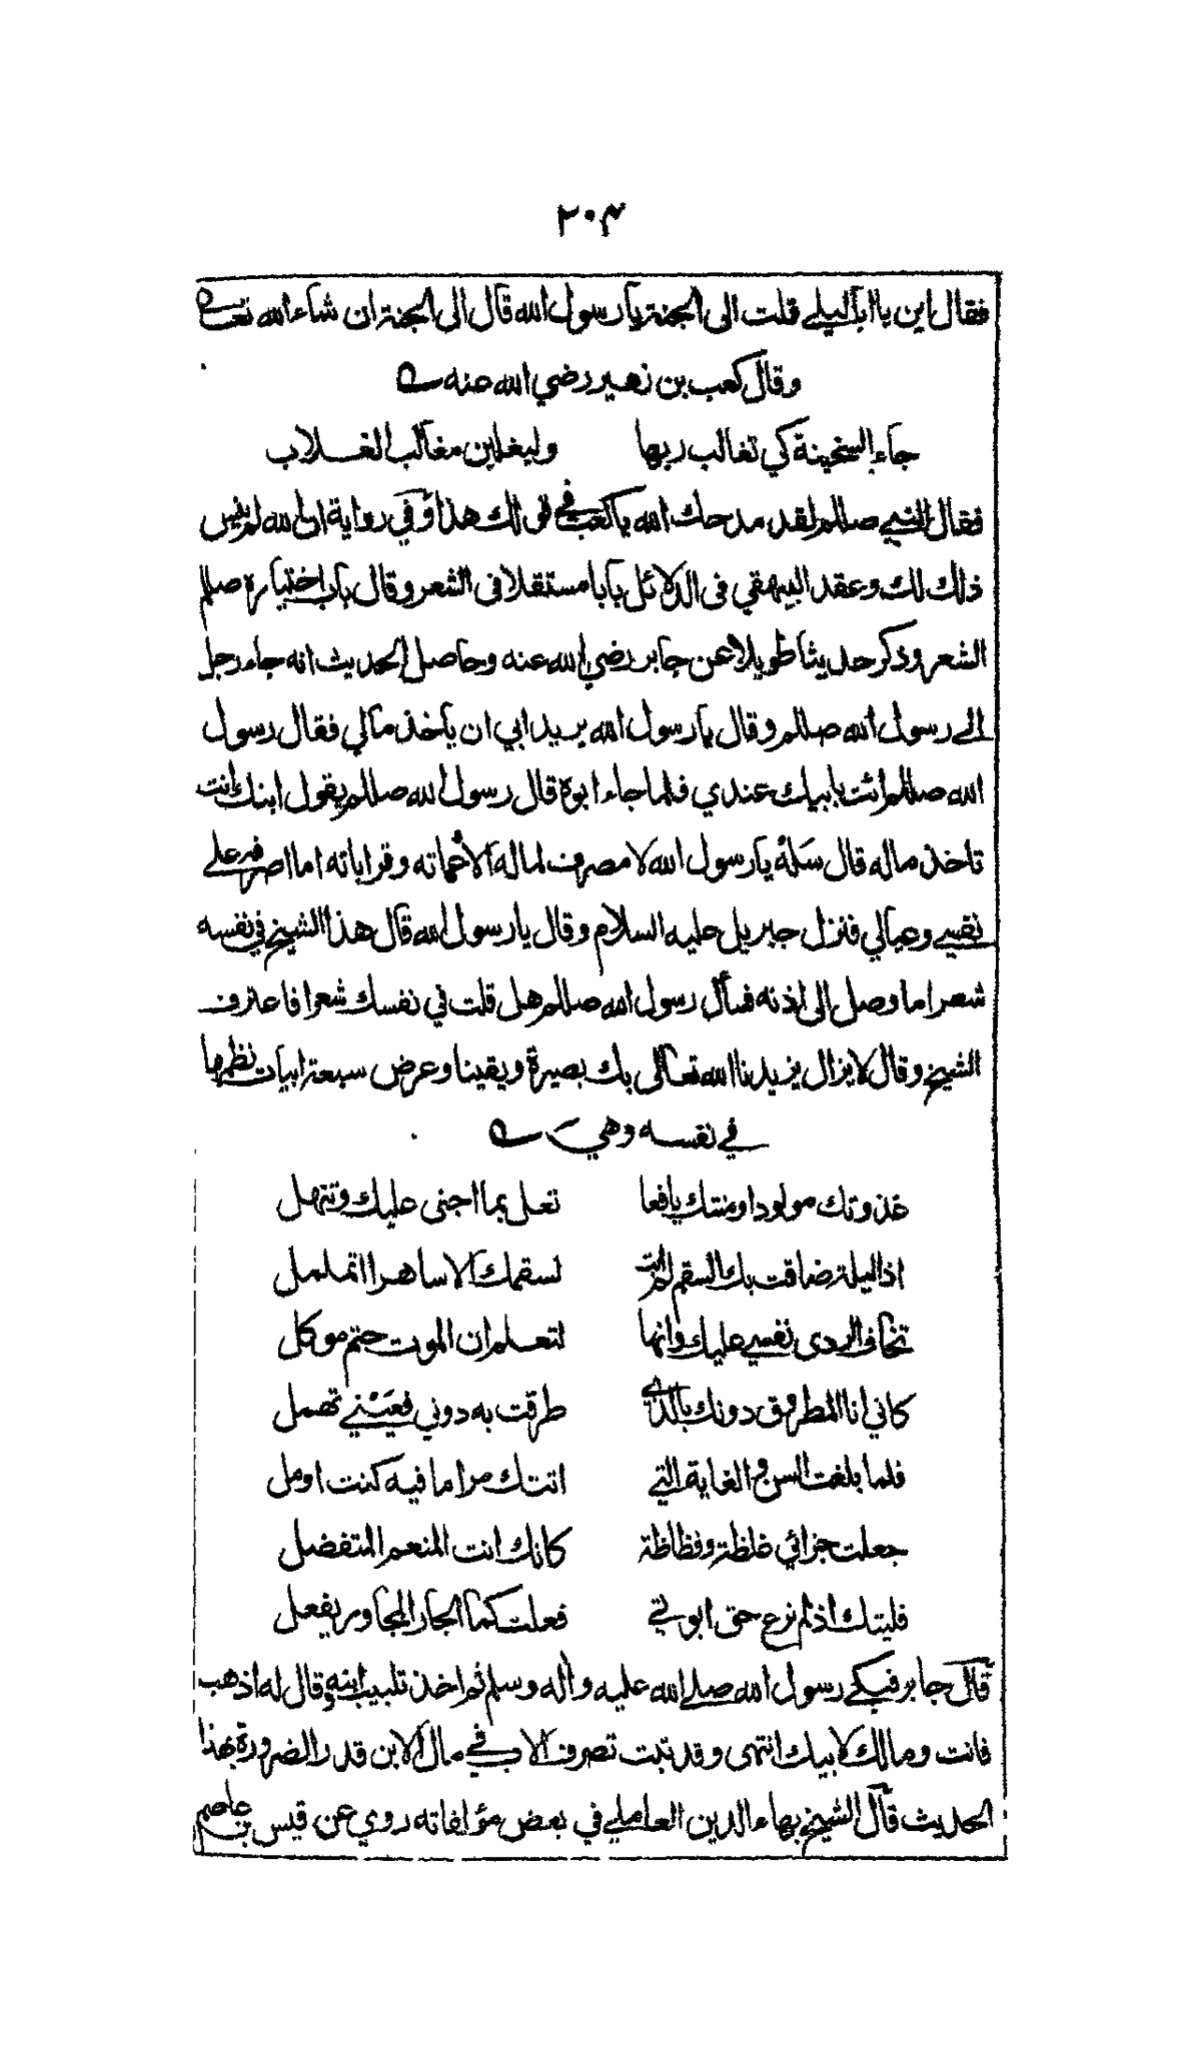 ٢٠٣
فقال اين يا ابا ليلے قلت الى الجنة يا رسول الله قال الى الجنة ان شاء الله تعالے
وقال كعب بن زهير رضي الله عنه
جاء السخينة كي تغالب ربها وليغلبن مغالب الغلاب
فقال النبي صللم لقد مدحك الله يا كعب في قولك هذا وفي رواية ان الله لم ينس
ذلك لك وعقد البيهقي فى الدلائل بابا مستقلا فى الشعر وقال باب اختياره صللم
الشعر وذكر حديثا طويلا عن جابر رضي الله عنه وحاصل الحديث انه جاء رجل
الے رسول الله صللم وقال يا رسول الله يريد ابي ان ياخذ مالي فقال رسول
الله صللم ائت بابيك عندي فلما جاء ابوه قال رسول الله صللم يقول ابنك انت
تاخذ ماله قال سَلهُ يا رسول الله لا مصرف لماله الا عماته وقراباته اما اصرفه علے
نفسے وعيالي فنزل جبريل عليه السلام وقال يا رسول الله قال هذا الشيخ في نفسه
شعرا ما وصل الى اذنه فسأل رسول الله صللم هل قلت في نفسك شعرا فاعترف
الشيخ وقال لا يزال يزيدنا الله تعالى بك بصيرة ويقينا وعرض سبعة ابيات نظمها
في نفسه وهي
غذوتك مولودا ومنتك يافعا تعل بما اجنى عليك وتنهل
اذا ليلة ضاقت بك السقم لم ابت لسقمك الا ساهرا اتململ
تخاف الردى نفسے عليك وانها لتعلم ان الموت حتم موكل
كاني انا المطروق دونك بالذي طرقت به دوني فعَيْنے تهمل
فلما بلغت السن والغاية التے اتتك مراما فيه كنت اومل
جعلت جزائي غلظة وفظاظة كانك انت المنعم المتفضل
فليتك اذ لم نرع حق ابوتي فعلت كما الجار المجاور يفعل
قال جابر فبكے رسول الله صلے الله عليه وآله وسلم ثم اخذ تلبيب ابنه وقال له اذهب
فانت ومالك لابيك انتهى وقد ثبت تصرف الاب في مال الابن قدر الضرورة بهذا
الحديث قال الشيخ بهاء الدين العاملے في بعض مؤلفاته روي عن قيس بن عاصم